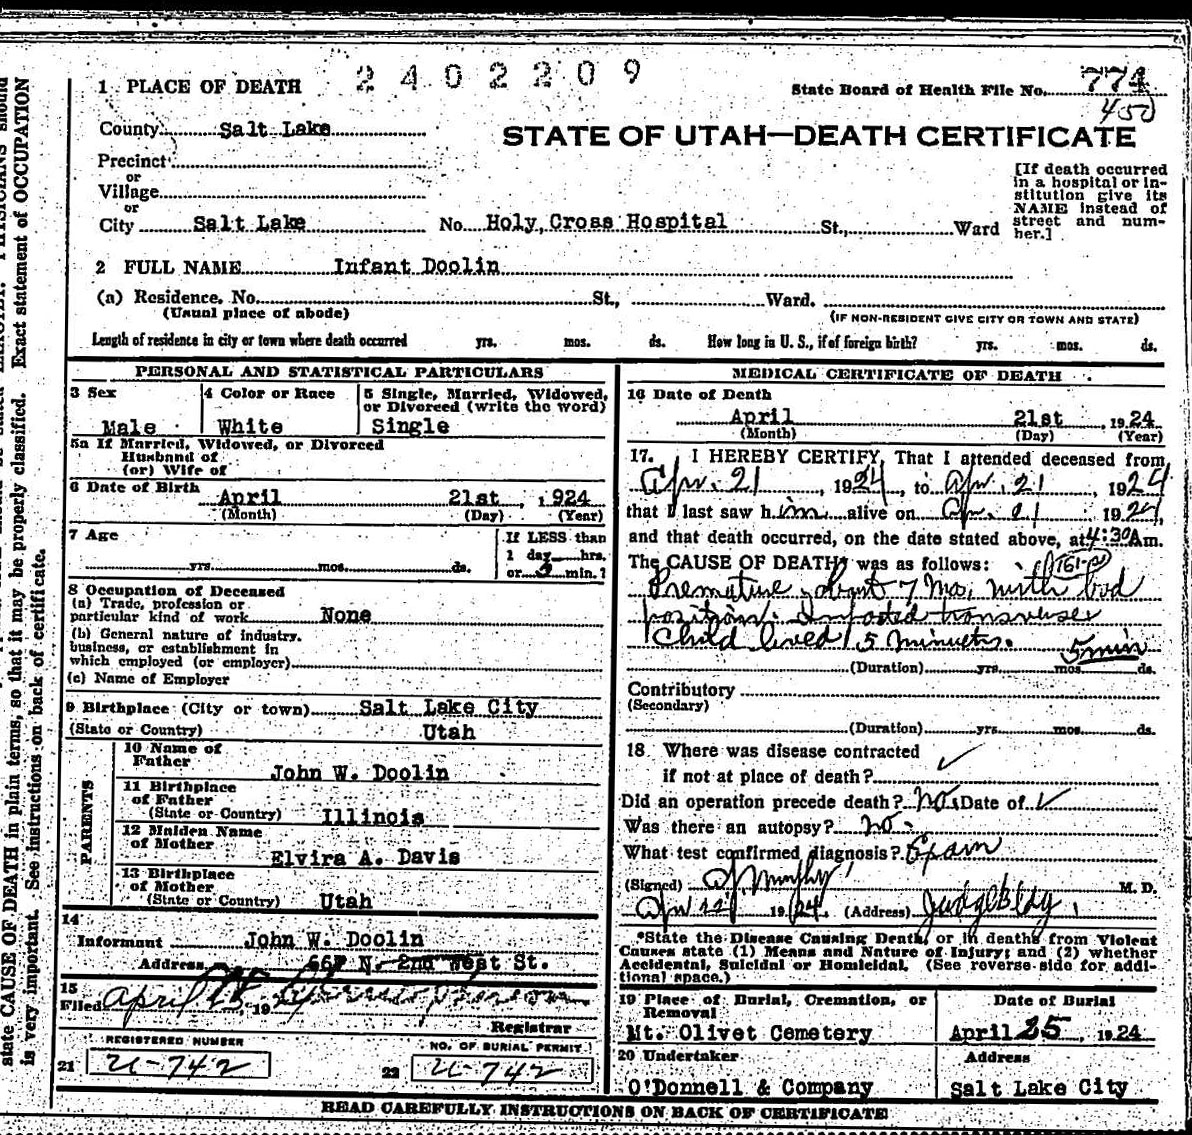 2402209
1 PLACE OF DEATH
State Board of Health File No. 774
450
County Salt Lake
STATE OF UTAH—DEATH CERTIFICATE
Precinct
or
Village
or
City Salt Lake No. Holy Cross Hospital St., Ward
[If death occurred
in a hospital or in-
stitution give its
NAME instead of
street and num-
ber.]
2 FULL NAME Infant Doolin
(a) Residence. No. St., Ward.
(Usual place of abode) (IF NON-RESIDENT GIVE CITY OR TOWN AND STATE)
Length of residence in city or town where death occurred yrs. mos. ds. How long in U. S., if of foreign birth? yrs. mos. ds.
PERSONAL AND STATISTICAL PARTICULARS
3 Sex 4 Color or Race 5 Single, Married, Widowed,
or Divorced (write the word)
Male White Single
5a If Married, Widowed, or Divorced
Husband of
(or) Wife of
6 Date of Birth
April 21st, 1924
(Month) (Day) (Year)
7 Age If LESS than
1 day hrs.
yrs. mos. ds. or 5 min.?
8 Occupation of Deceased
(a) Trade, profession or
particular kind of work None
(b) General nature of industry,
business, or establishment in
which employed (or employer)
(c) Name of Employer
9 Birthplace (City or town) Salt Lake City
(State or Country) Utah
PARENTS
10 Name of
Father
John W. Doolin
11 Birthplace
of Father
(State or Country) Illinois
12 Maiden Name
of Mother
Elvira A. Davis
13 Birthplace
of Mother
(State or Country) Utah
14
Informant John W. Doolin
Address 667 N. 2nd West St.
15
Filed April 25, 1924
Registrar
REGISTERED NUMBER NO. OF BURIAL PERMIT
21 U-742 22 U-742
MEDICAL CERTIFICATE OF DEATH
16 Date of Death
April 21st, 1924
(Month) (Day) (Year)
17. I HEREBY CERTIFY, That I attended deceased from
Apr. 21, 1924, to Apr. 21, 1924
that I last saw him alive on Apr. 21 1924,
and that death occurred, on the date stated above, at 4:30 Am.
The CAUSE OF DEATH* was as follows: 161-a
Premature about 7 Mo. with bad
position. Impacted transverse
Child lived 5 minutes. 5 min
(Duration) yrs. mos. ds.
Contributory
(Secondary)
(Duration) yrs. mos. ds.
18. Where was disease contracted
if not at place of death?
Did an operation precede death? No. Date of
Was there an autopsy? no.
What test confirmed diagnosis? Exam
(Signed) Murphy M. D.
Apr 22, 1924. (Address) Judge Bldg.
*State the Disease Causing Death, or in deaths from Violent
Causes state (1) Means and Nature of Injury; and (2) whether
Accidental, Suicidal or Homicidal. (See reverse side for addi-
tional space.)
19 Place of Burial, Cremation, or
Removal
Date of Burial
Mt. Olivet Cemetery April 25, 1924
20 Undertaker Address
O'Donnell & Company Salt Lake City
READ CAREFULLY INSTRUCTIONS ON BACK OF CERTIFICATE
state CAUSE OF DEATH in plain terms, so that it may be properly classified. Exact statement of OCCUPATION
is very important. See instructions on back of certificate.